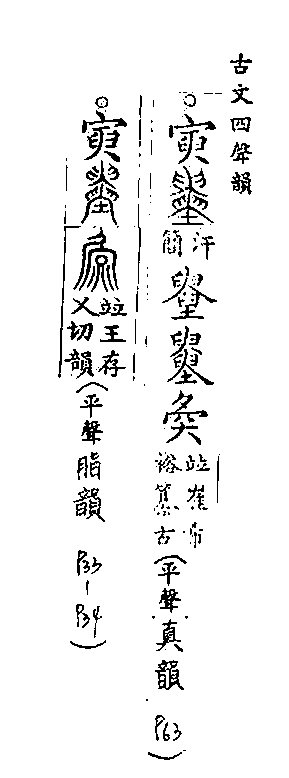 古文四聲韻
○寅 汗簡 竝崔希裕纂古（平聲真韻 P63）
○寅 竝王存乂切韻（平聲脂韻 P33-P34）